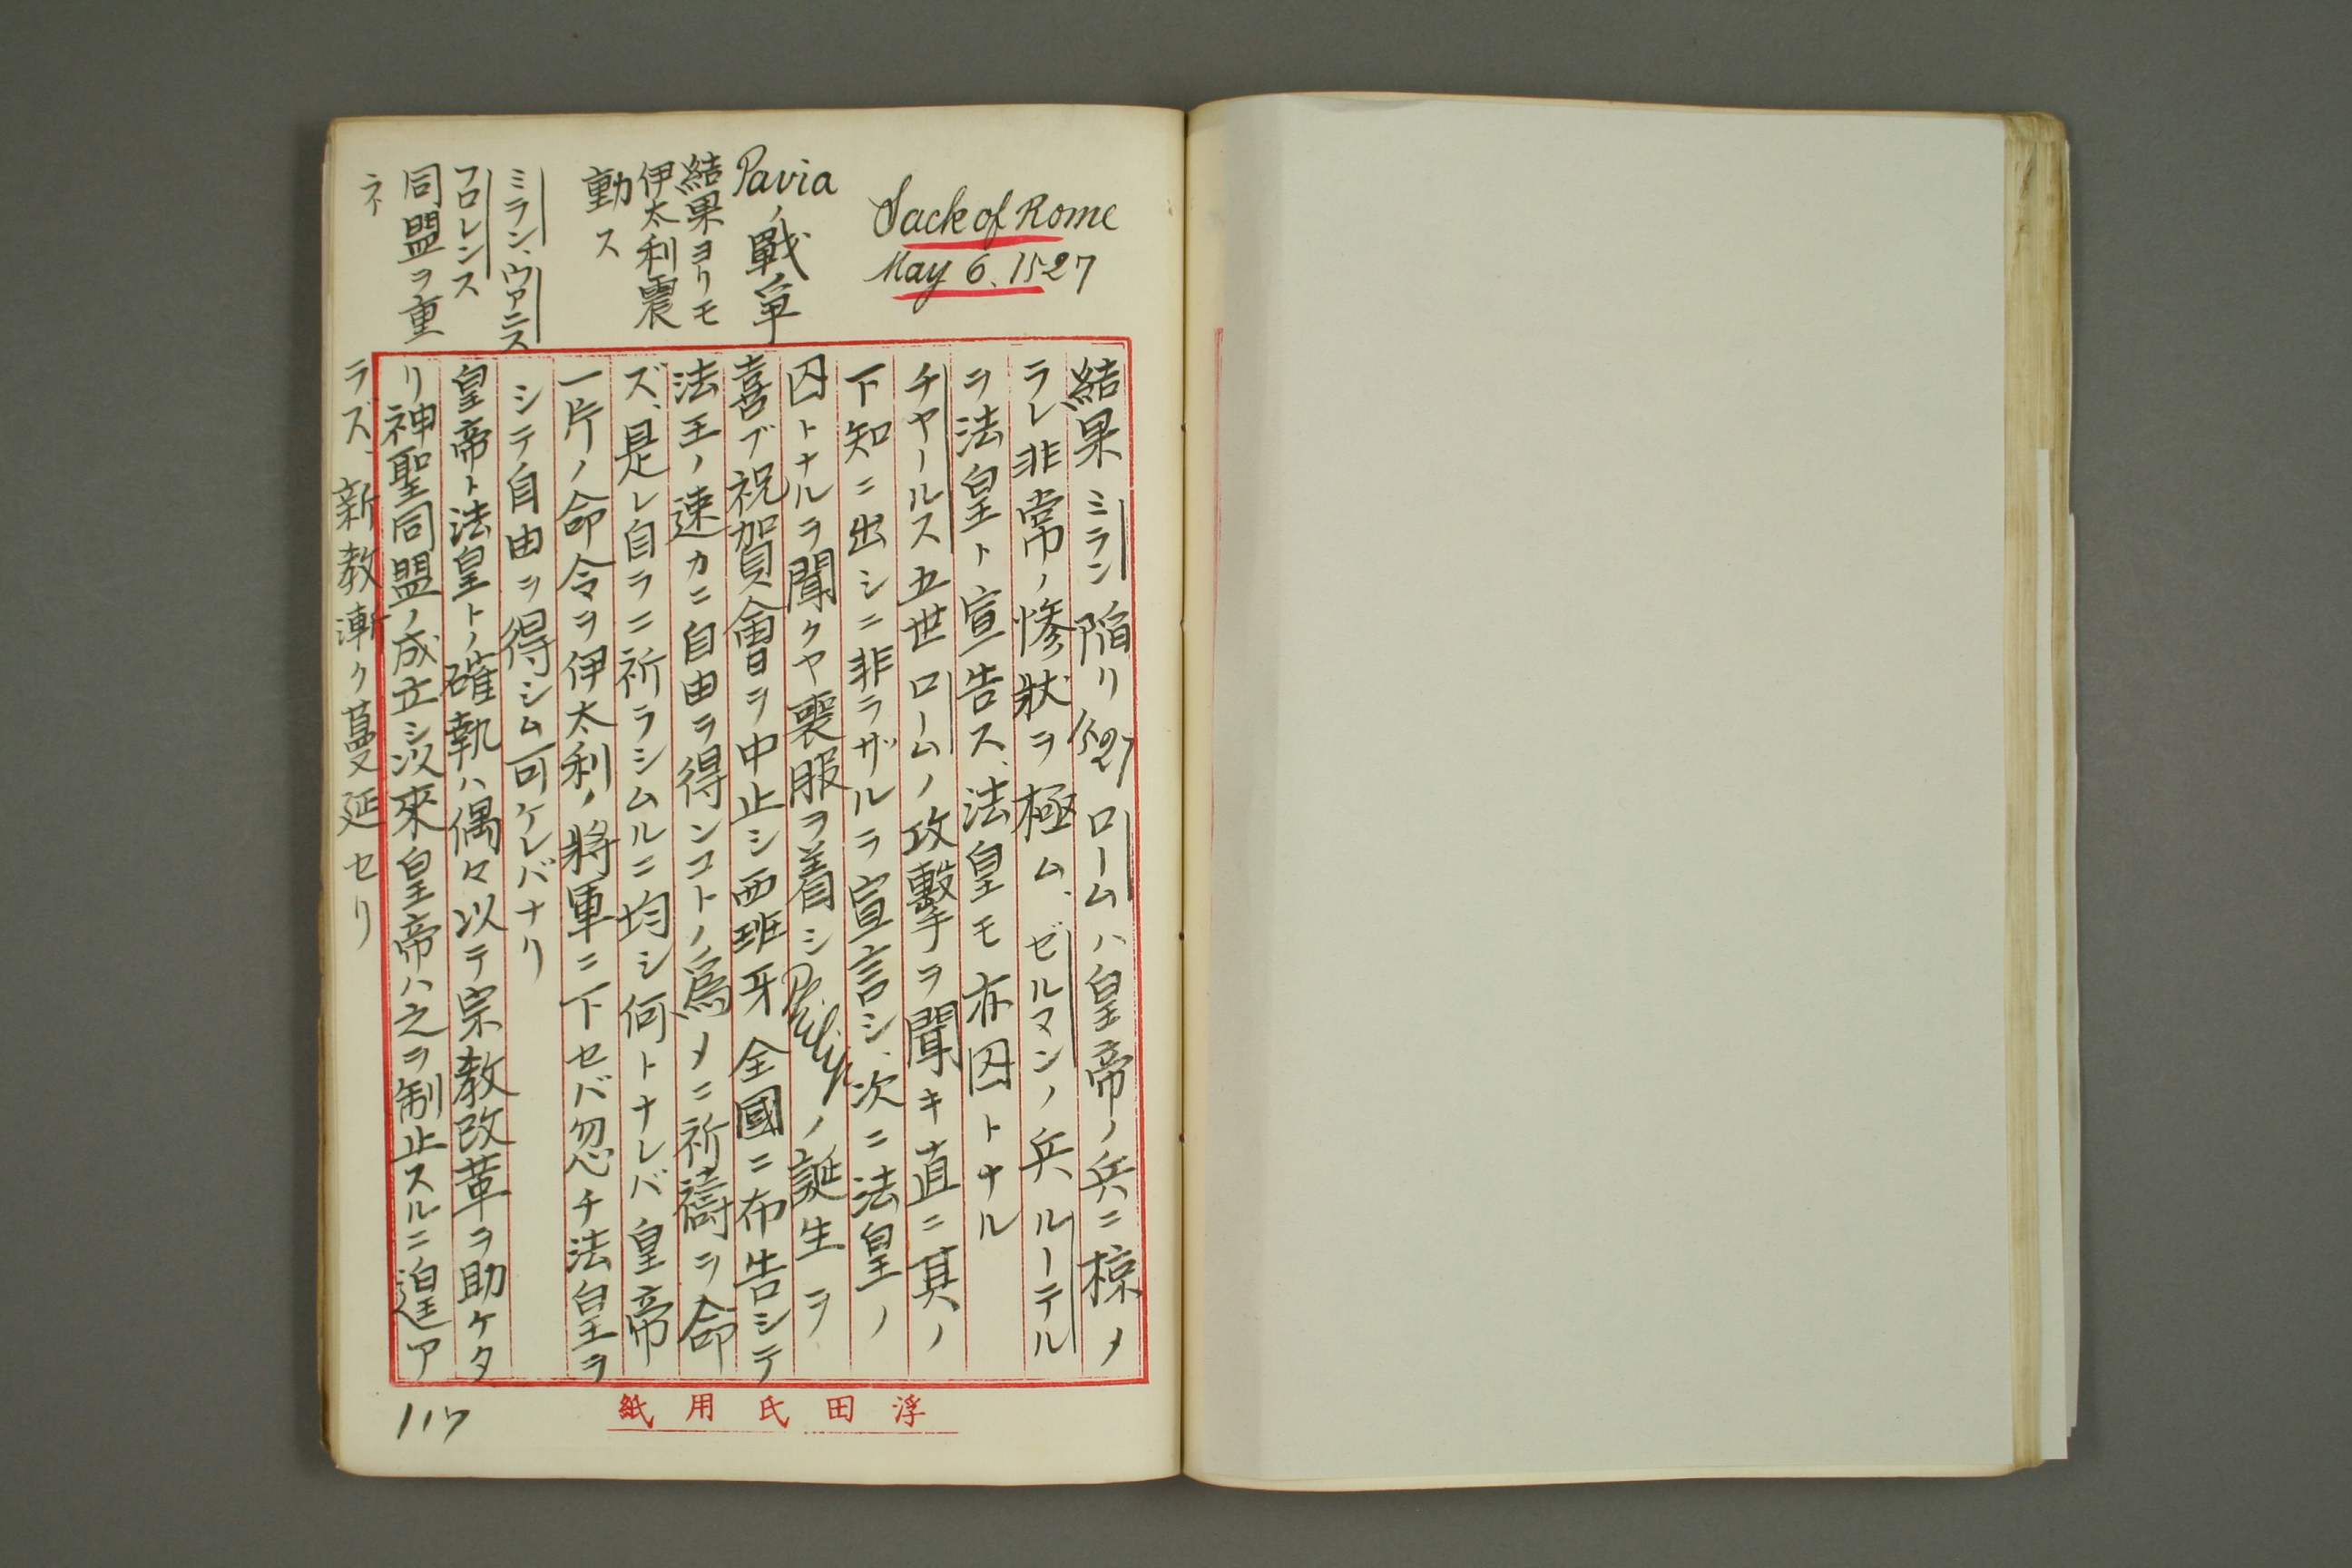 Sack of Rome
May 6. 1527
Paviaノ戰爭
結果ヨリモ
伊太利震
動ス
ミラン、ヴァニス
フロレンス
同盟ヲ重
ネ
結果ミラン陷リ1527ロームハ皇帝ノ兵ニ掠メ
ラレ非常ノ慘狀ヲ極ム、ゼルマンノ兵ルーテル
ヲ法皇ト宣告ス、法皇モ亦囚トナル
チヤールス五世ロームノ攻擊ヲ聞キ直ニ其ノ
下知ニ出シニ非ラザルヲ宣言シ、次ニ法皇ノ
囚トナルヲ聞クヤ喪服ヲ着シノ誕生ヲ
喜ブ祝賀會ヲ中止シ西班牙全國ニ布告シテ
法王ノ速カニ自由ヲ得ンコトノ爲メニ祈禱ヲ命
ズ、是レ自ラニ祈ラシムルニ均シ何トナレバ皇帝
一片ノ命令ヲ伊太利ノ將軍ニ下セバ忽チ法皇ヲ
シテ自由ヲ得シム可ケレバナリ
皇帝ト法皇トノ確執ハ偶々以テ宗教改革ヲ助ケタ
リ神聖同盟ノ成立シ以來皇帝ハ之ヲ制止スルニ遑ア
ラズ、新教漸ク蔓延セリ
117
浮田氏用紙